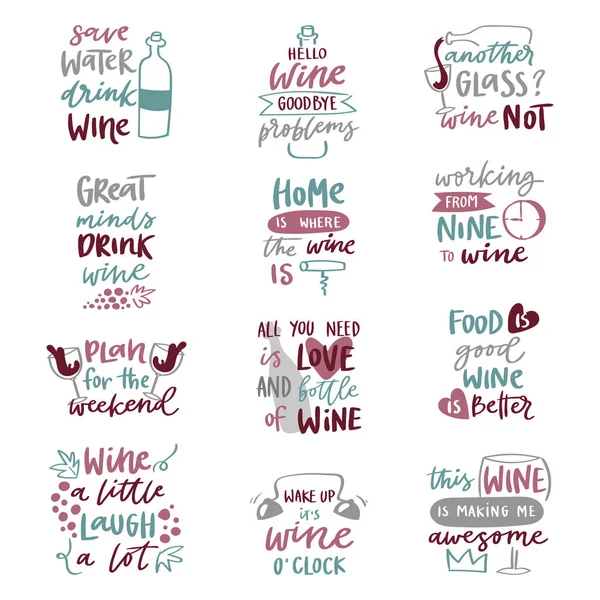 save
WATER
drink
WINE
HELLO
Wine
GOODBYE
problems
another
GLASS?
wine NOT
GREAT
minds
DRINK
wine
HOME
IS WHERE
the wine
IS
working
FROM
NINE
TO wine
PLAN
for the
weekend
ALL YOU NEED
is LOVE
AND bottle
of WINE
FOOD IS
good
WINE
IS Better
Wine
a little
LAUGH
a lot
WAKE UP
it's
wine
O'CLOCK
this WINE
IS MAKING ME
awesome